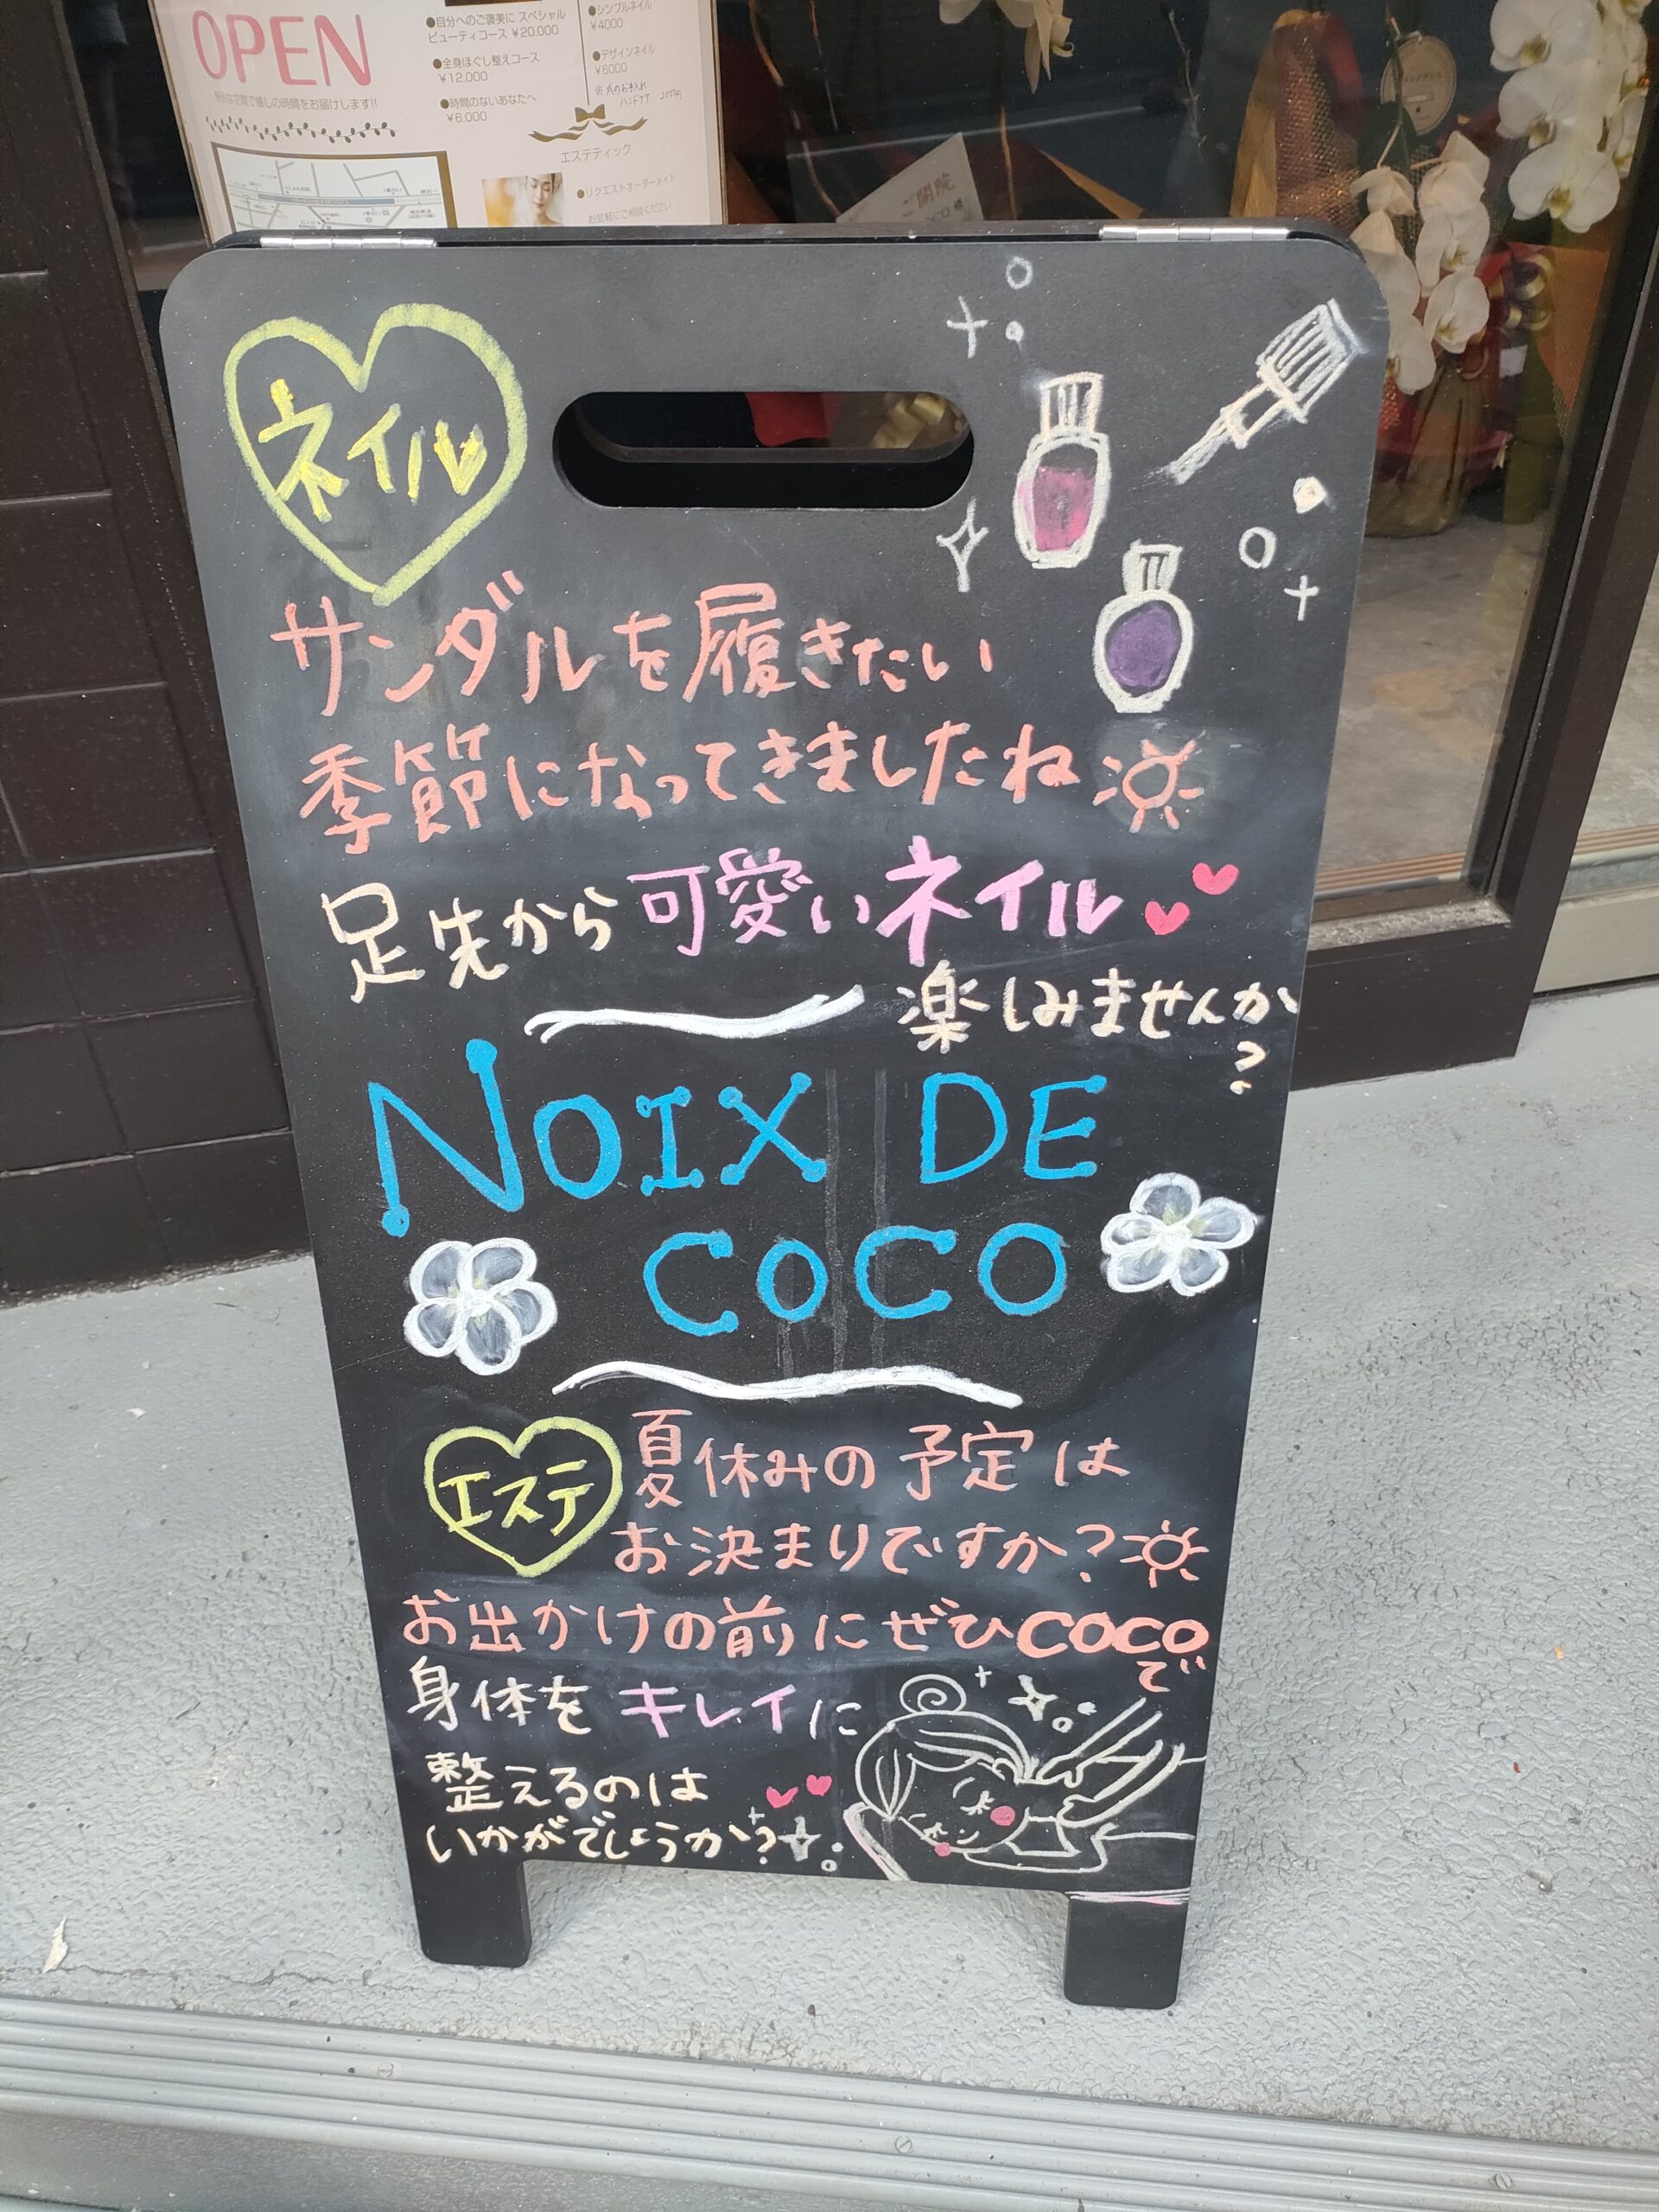 OPEN
特別な空間で癒しの時間をお届けします!!
●自分へのご褒美に スペシャル
ビューティコース ¥20,000
●全身ほぐし整えコース
¥12,000
●時間のないあなたへ
¥6,000
●シンプルネイル
¥4000
●デザインネイル
¥6000
エステティック
●リクエストオーダーメイド
お気軽にご相談ください
ネイル
サンダルを履きたい
季節になってきましたね
足先から可愛いネイル
楽しみませんか?
NOIX DE
COCO
エステ
夏休みの予定は
お決まりですか?
お出かけの前にぜひCOCOで
身体をキレイに
整えるのは
いかがでしょうか?